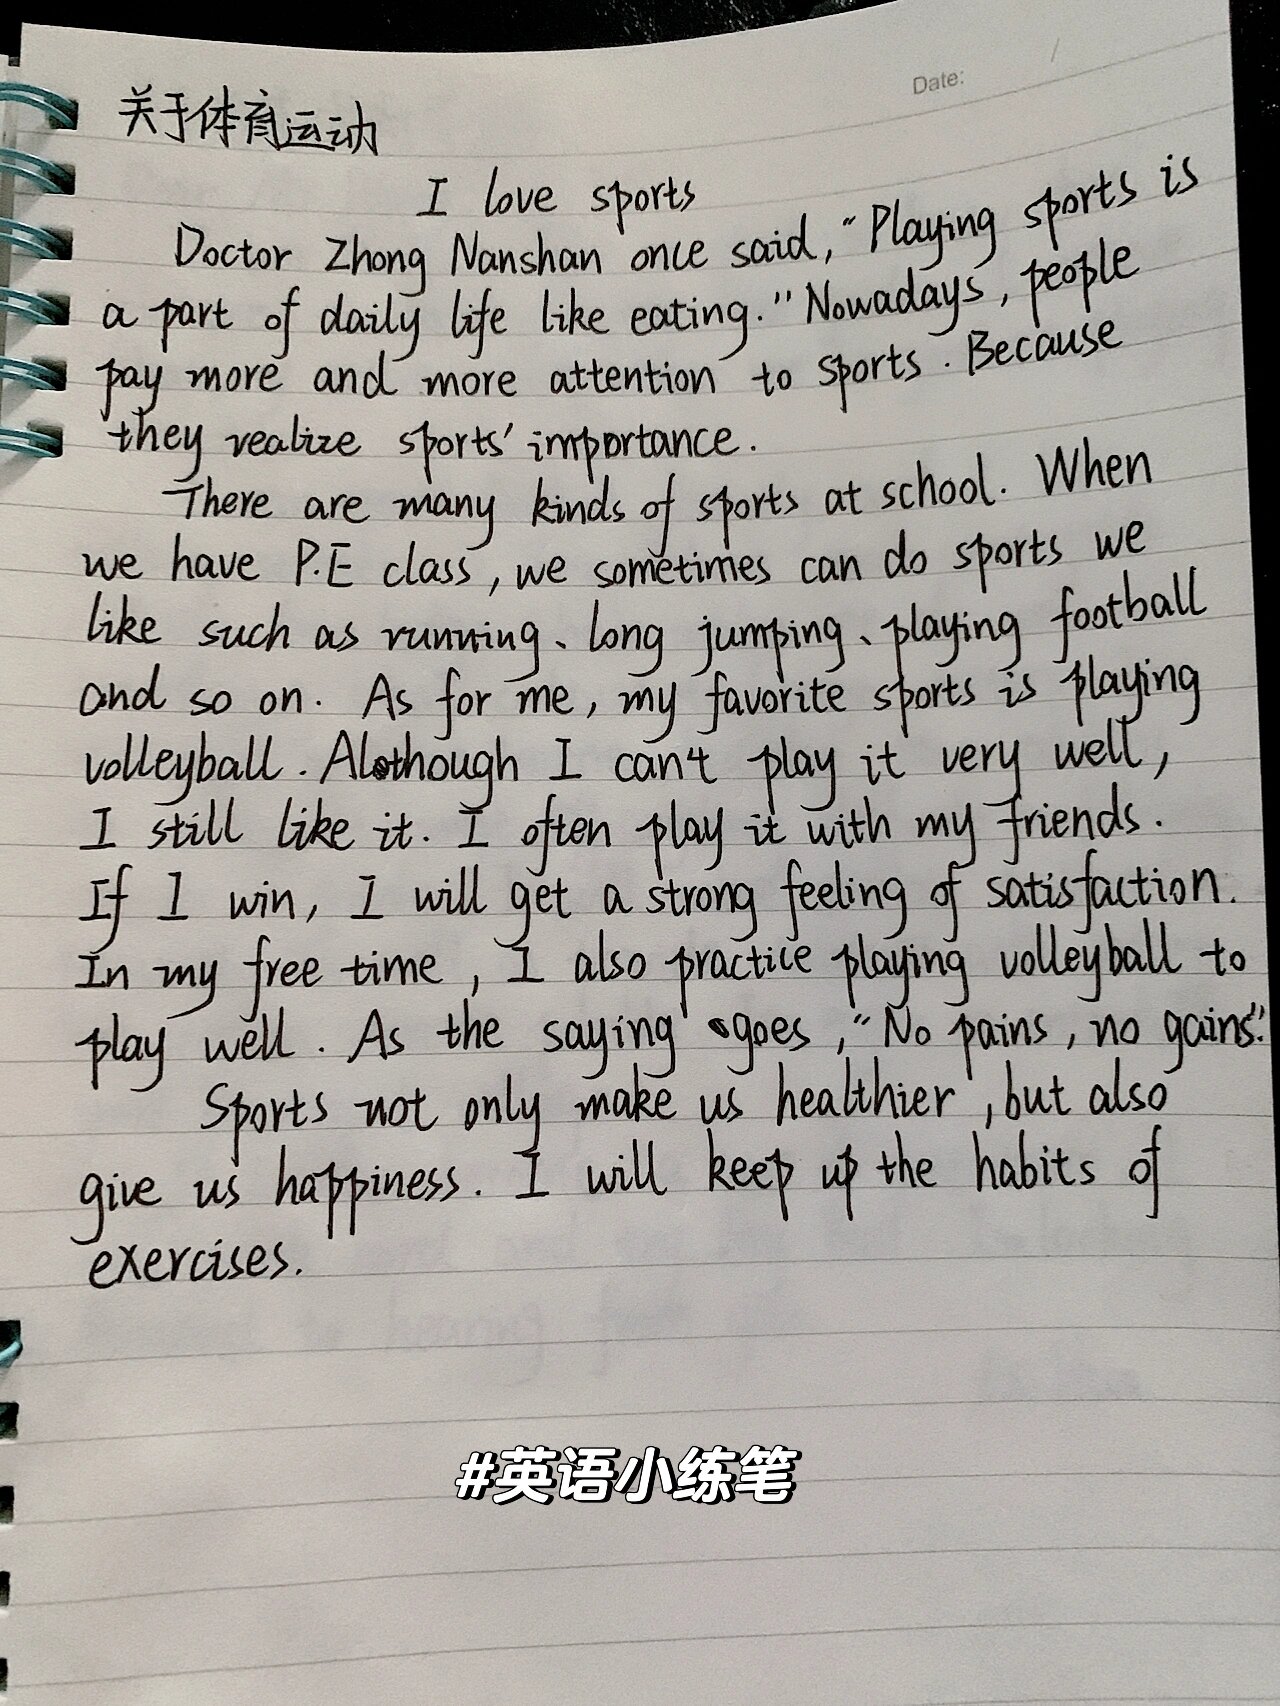 Date:
关于体育运动
I love sports
Doctor Zhong Nanshan once said, "Playing sports is
a part of daily life like eating." Nowadays, people
pay more and more attention to sports. Because
they realize sports' importance.
There are many kinds of sports at school. When
we have P.E class, we sometimes can do sports we
like such as running、long jumping、playing football
and so on. As for me, my favorite sports is playing
volleyball. Although I can't play it very well,
I still like it. I often play it with my friends.
If I win, I will get a strong feeling of satisfaction.
In my free time, I also practice playing volleyball to
play well. As the saying goes, "No pains, no gains."
Sports not only make us healthier, but also
give us happiness. I will keep up the habits of
exercises.
#英语小练笔